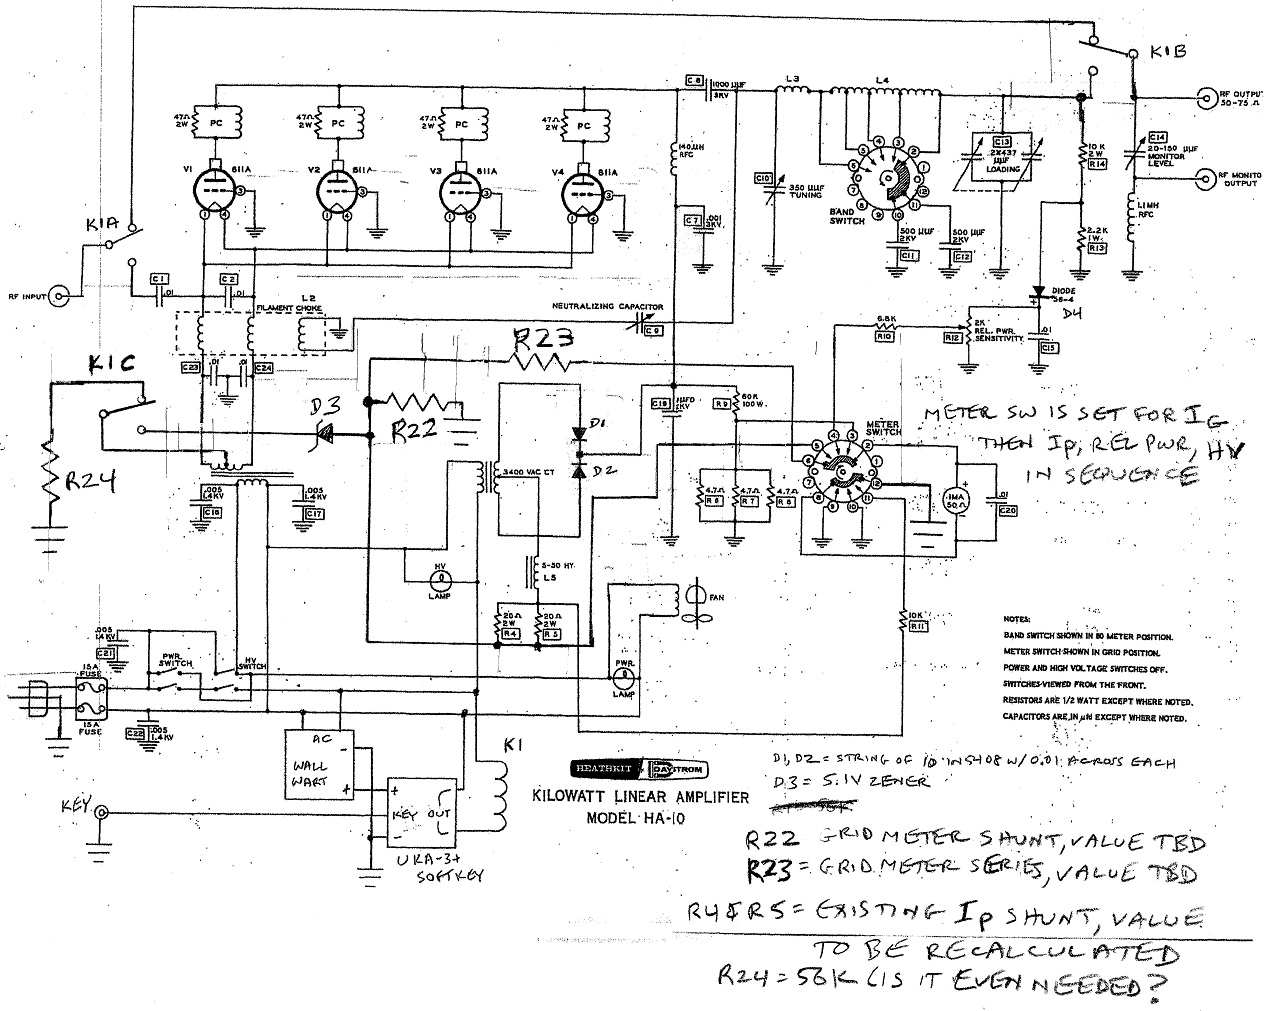 K1B
C 8
1000 µµF
5KV
L3
L4
RF OUTPUT
50-75 Ω
47Ω
2W
PC
47Ω
2W
PC
47Ω
2W
PC
47Ω
2W
PC
140µH
RFC
V1
811A
V2
811A
V3
811A
V4
811A
C13
2X437
µµF
LOADING
10 K
2 W
R14
C14
20-150 µµF
MONITOR
LEVEL
RF MONITO
OUTPUT
C10
350 µµF
TUNING
BAND
SWITCH
1
2
3
4
5
6
7
8
9
10
11
12
1.1MH
RFC
K1A
C 7
.001
3KV.
500 µµF
2KV
C11
500 µµF
2KV
C12
2.2K
1W.
R13
RF INPUT
C 1
.01
C 2
.01
L2
FILAMENT CHOKE
NEUTRALIZING CAPACITOR
C 9
DIODE
56-4
D4
6.8K
R10
2K
R12
REL. PWR.
SENSITIVITY
.01
C15
K1C
C23
.01
.01
C24
R23
D3
R22
D1
D2
C19
1µFD
2KV
R 9
60K
100W.
METER
SWITCH
1
2
3
4
5
6
7
8
9
10
11
12
METER SW IS SET FOR IG
THEN IP, REL PWR, HV
IN SEQUENCE
R24
3400 VAC CT
4.7Ω
R 6
4.7Ω
R 7
4.7Ω
R 8
1MA
50Ω
.01
C20
.005
1.4KV
C16
.005
1.4KV
C17
HV
LAMP
5-50 HY.
L5
FAN
20Ω
2W
R 4
20Ω
2W
R 5
10K
R11
NOTES:
BAND SWITCH SHOWN IN 80 METER POSITION.
METER SWITCH SHOWN IN GRID POSITION.
POWER AND HIGH VOLTAGE SWITCHES OFF.
SWITCHES VIEWED FROM THE FRONT.
RESISTORS ARE 1/2 WATT EXCEPT WHERE NOTED.
CAPACITORS ARE IN µfd EXCEPT WHERE NOTED.
.005
1.4KV
C21
PWR.
SWITCH
HV
SWITCH
PWR.
LAMP
15A
FUSE
15A
FUSE
C22
.005
1.4KV
AC
WALL
WART
-
+
K1
+
KEY OUT
-
KEY
URA-3+
SOFTKEY
HEATHKIT DAYSTROM
KILOWATT LINEAR AMPLIFIER
MODEL HA-10
D1, D2 = STRING OF 10 1N5408 W/0.01 ACROSS EACH
D3 = 5.1V ZENER
R22 GRID METER SHUNT, VALUE TBD
R23 = GRID METER SERIES, VALUE TBD
R4 & R5 = EXISTING IP SHUNT, VALUE
TO BE RECALCULATED
R24 = 56K (IS IT EVEN NEEDED?